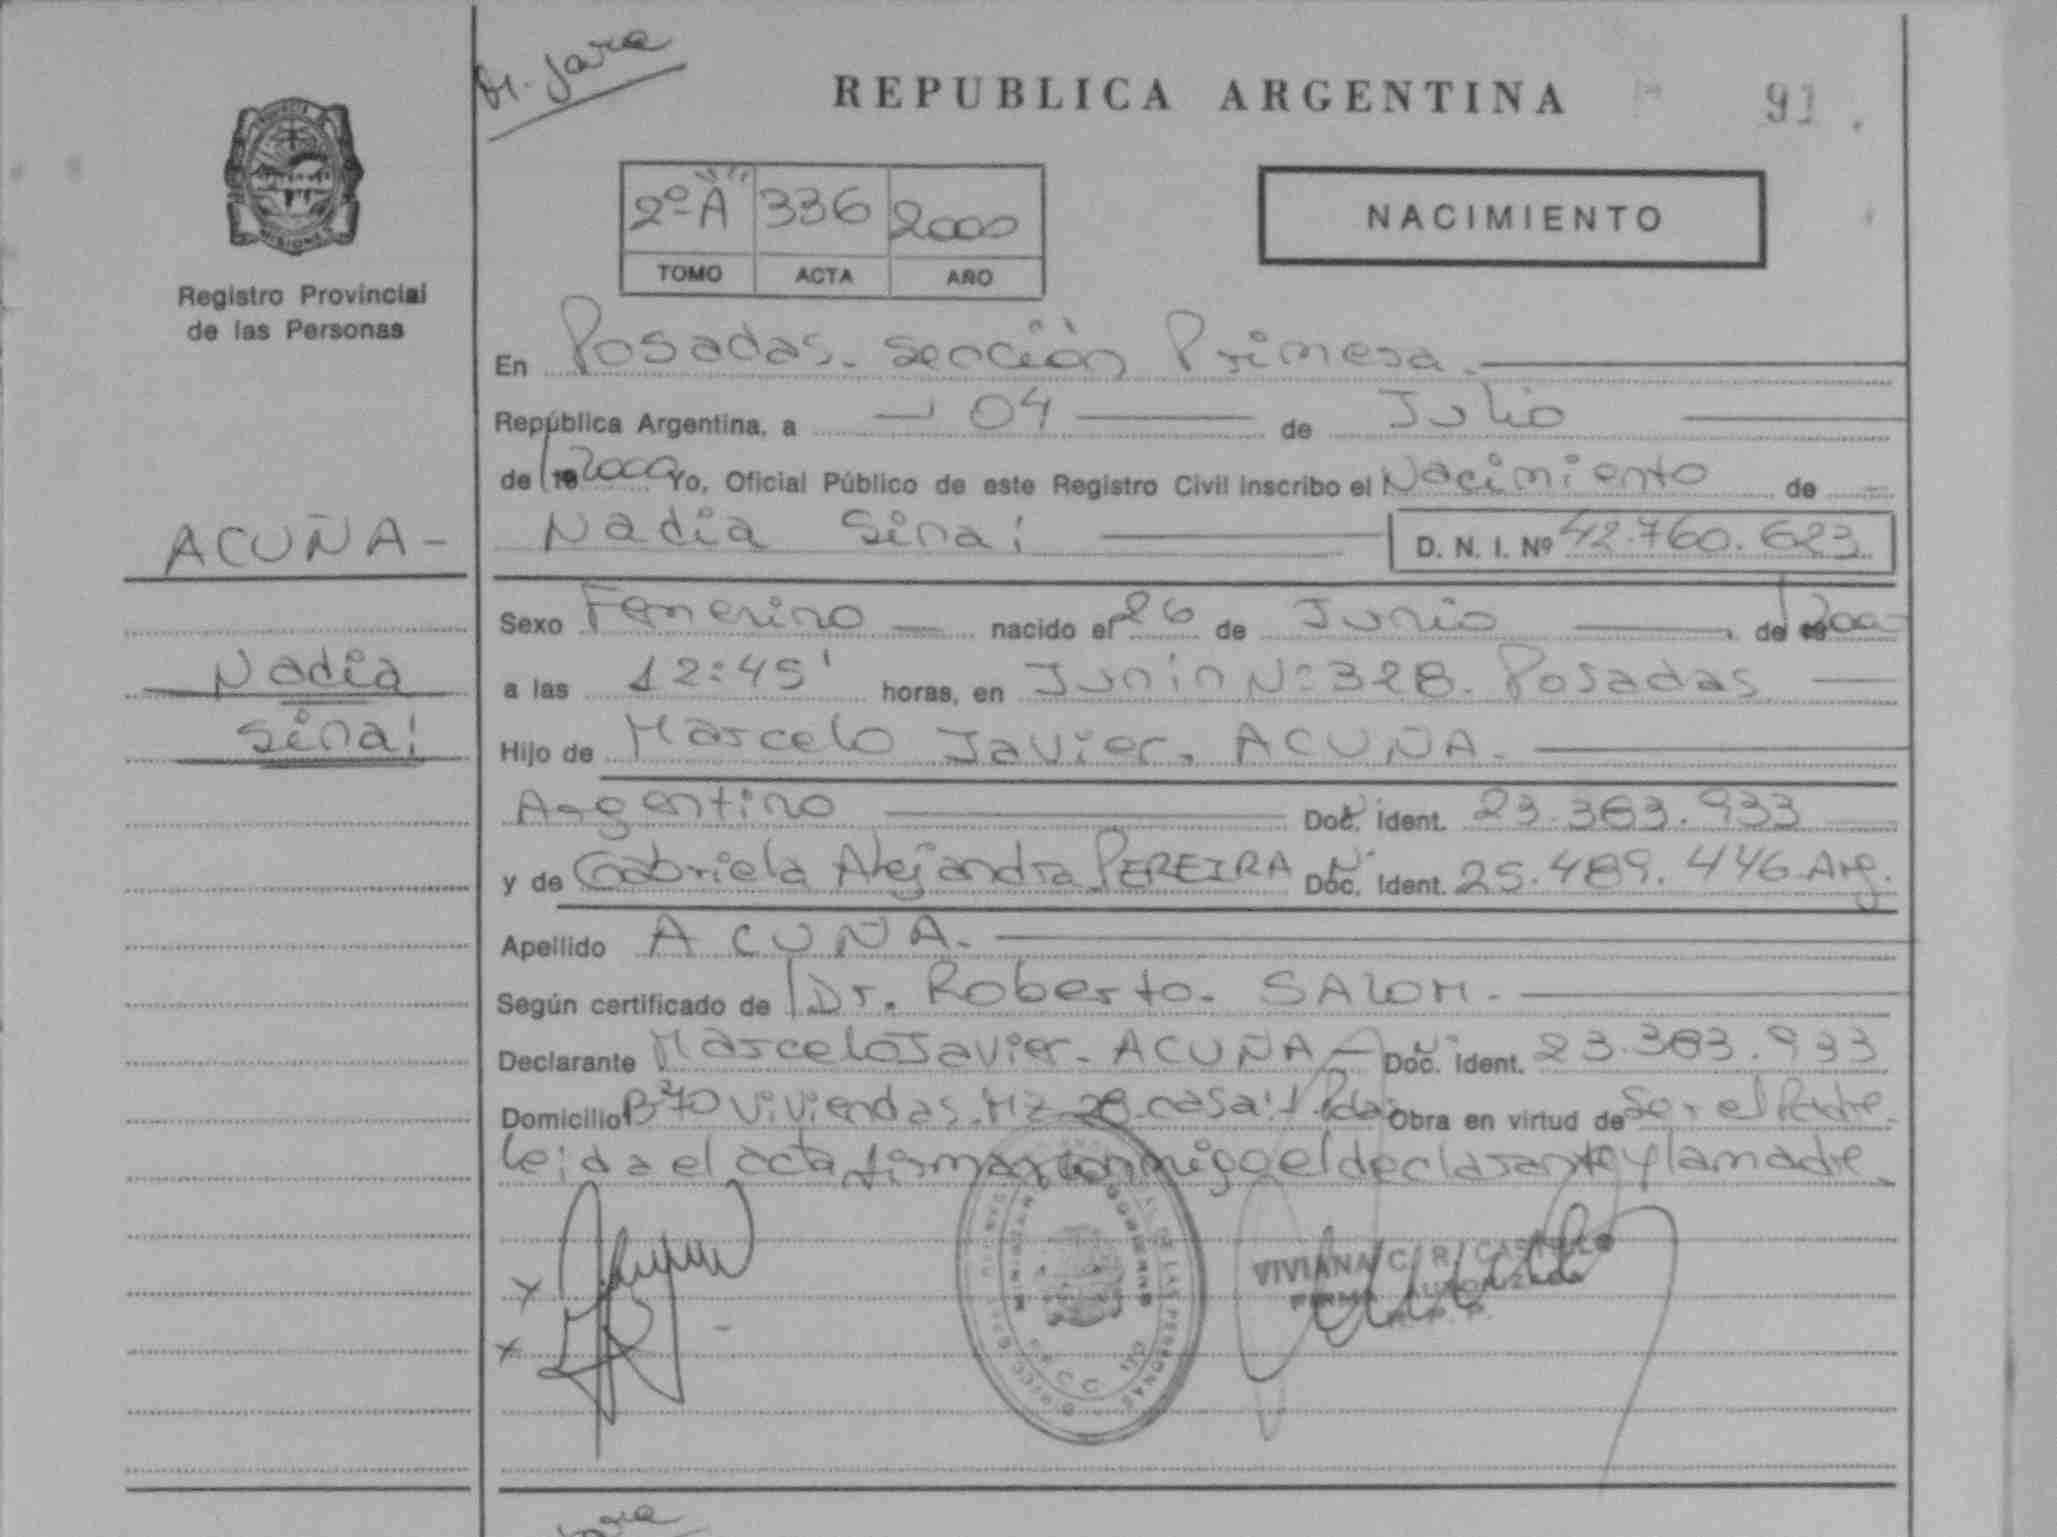 M. Jara
REPUBLICA ARGENTINA
91
2º A 336 2000
TOMO ACTA AÑO
NACIMIENTO
MISIONES
Registro Provincial
de las Personas
En Posadas. Sección Primera.
República Argentina, a 04 de Julio
de 19 2000 Yo, Oficial Público de este Registro Civil inscribo el Nacimiento de
Nadia Sinaí D. N. I. Nº 42.760.623
ACUÑA-
Nadia
Sinaí
Sexo Femenino nacido el 26 de Junio de 19 2000
a las 12:45' horas, en Junín Nº 328. Posadas
Hijo de Marcelo Javier. ACUÑA.
Argentino Doc. Ident. 23.383.933
y de Gabriela Alejandra PEREIRA Doc. Ident. 25.489.446 Arg.
Apellido ACUÑA.
Según certificado de Dr. Roberto. SALOM.
Declarante Marcelo Javier. ACUÑA Doc. Ident. 23.383.933
Domicilio Bº 70 viviendas. Mz 28 casa: 1 Pdas Obra en virtud de Ser el Padre.
leída el acta firman conmigo el declarante y la madre.
VIVIANA C. R. CASTILLO
FIRMA AUTORIZADA